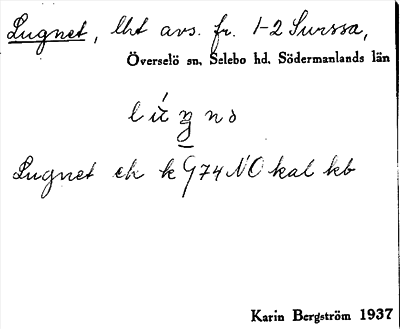 Lugnet, lht avs. fr. 1-2 Surssa,
Överselö sn, Selebo hd. Södermanlands län
Lugnet ek k G74 NO kal kb
Karin Bergström 1937